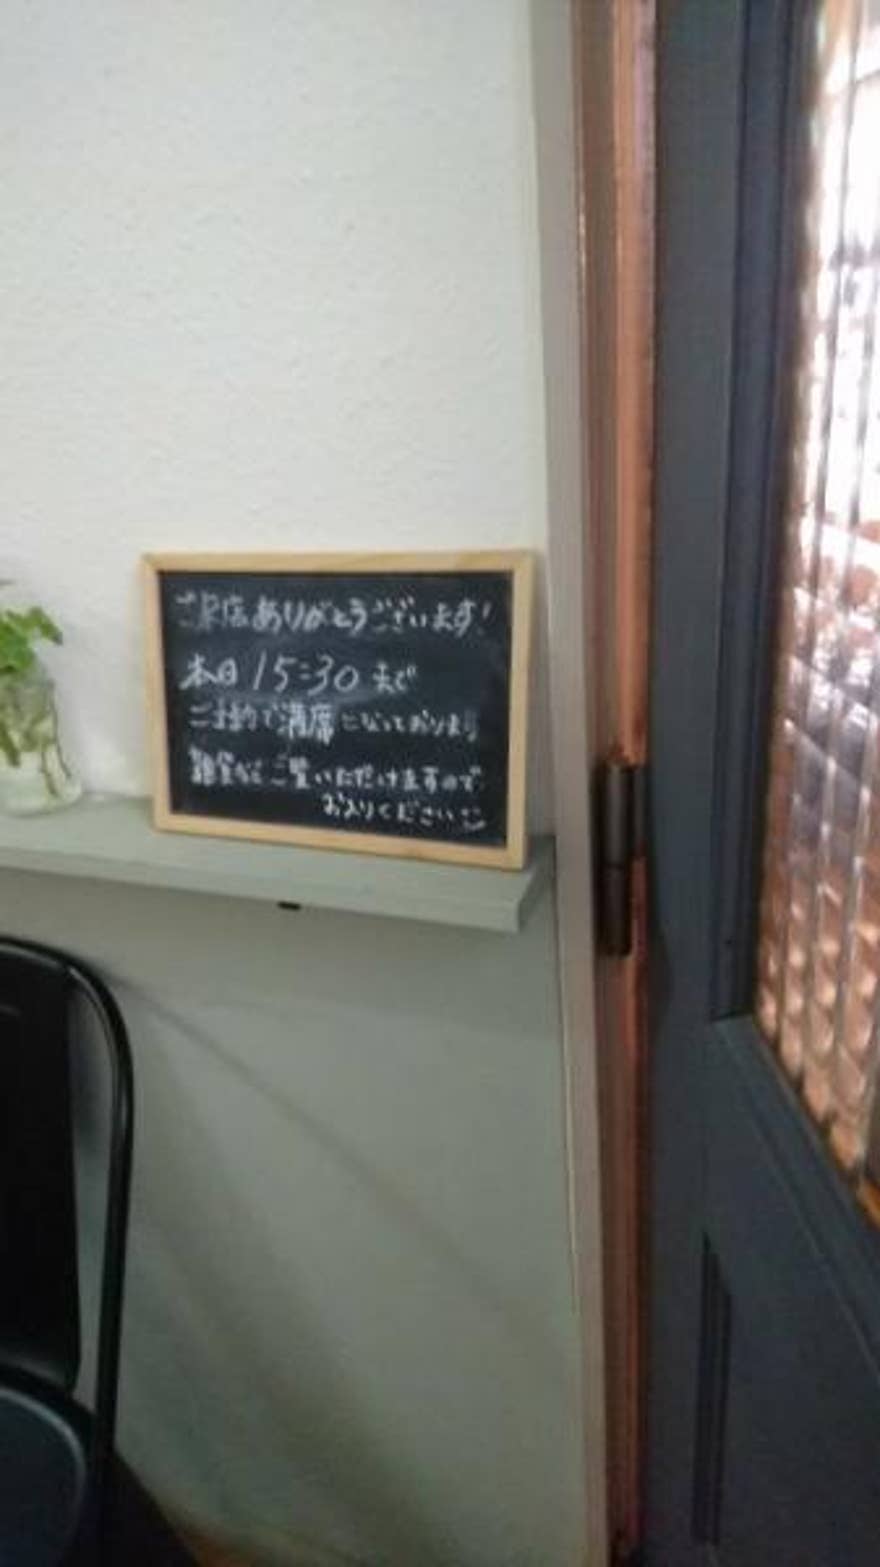 ご来店ありがとうございます!
本日 15:30 まで
ご予約で満席になっております
雑貨など ご覧いただけますので
お入りください